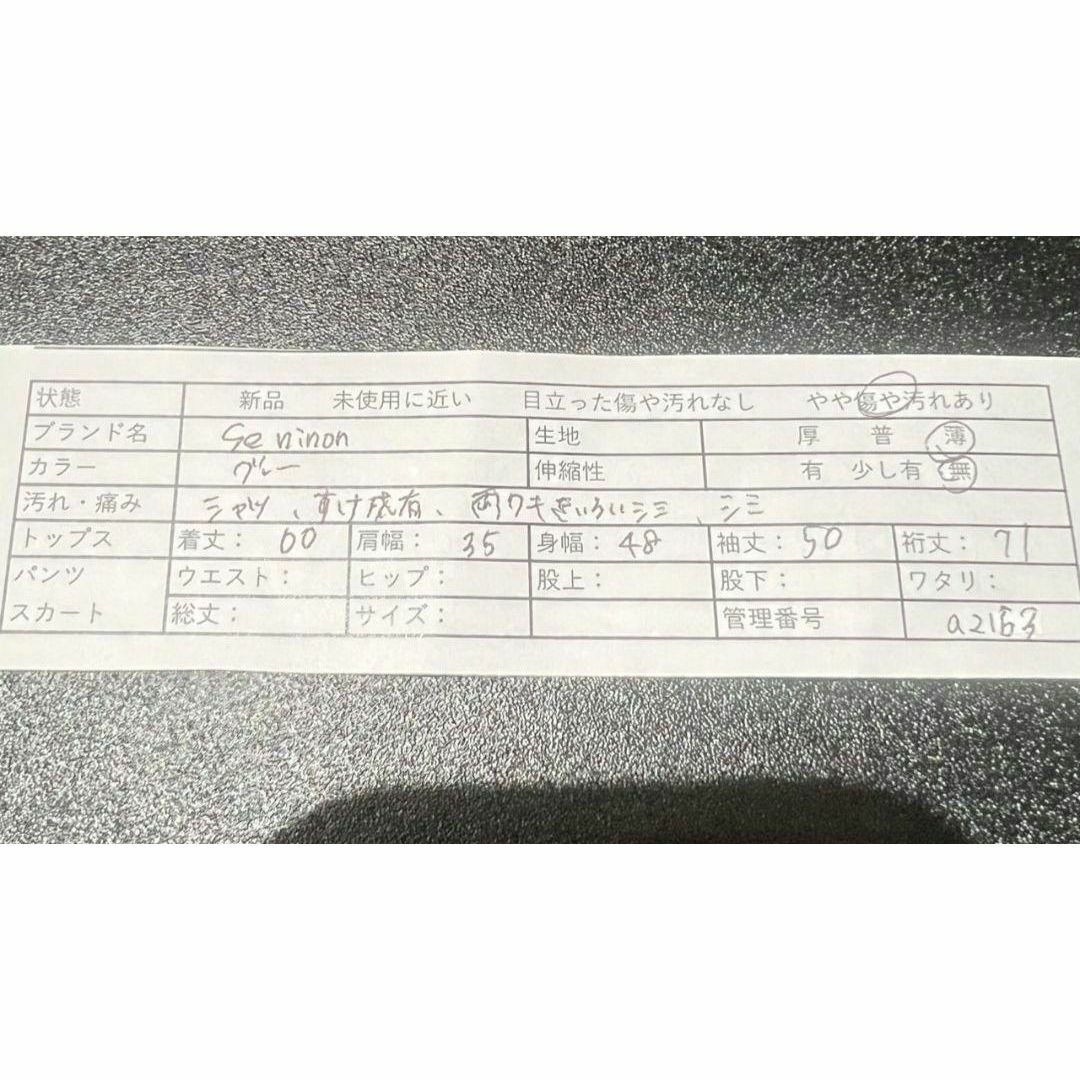 状態 新品 未使用に近い 目立った傷や汚れなし やや傷や汚れあり
ブランド名 Ge ninon 生地 厚 普 薄
カラー グレー 伸縮性 有 少し有 無
汚れ・痛み シャツ、すけ感有、両ワキきいろいシミ、シミ
トップス 着丈: 60 肩幅: 35 身幅: 48 袖丈: 50 裄丈: 71
パンツ ウエスト: ヒップ: 股上: 股下: ワタリ:
スカート 総丈: サイズ: 管理番号 a2163